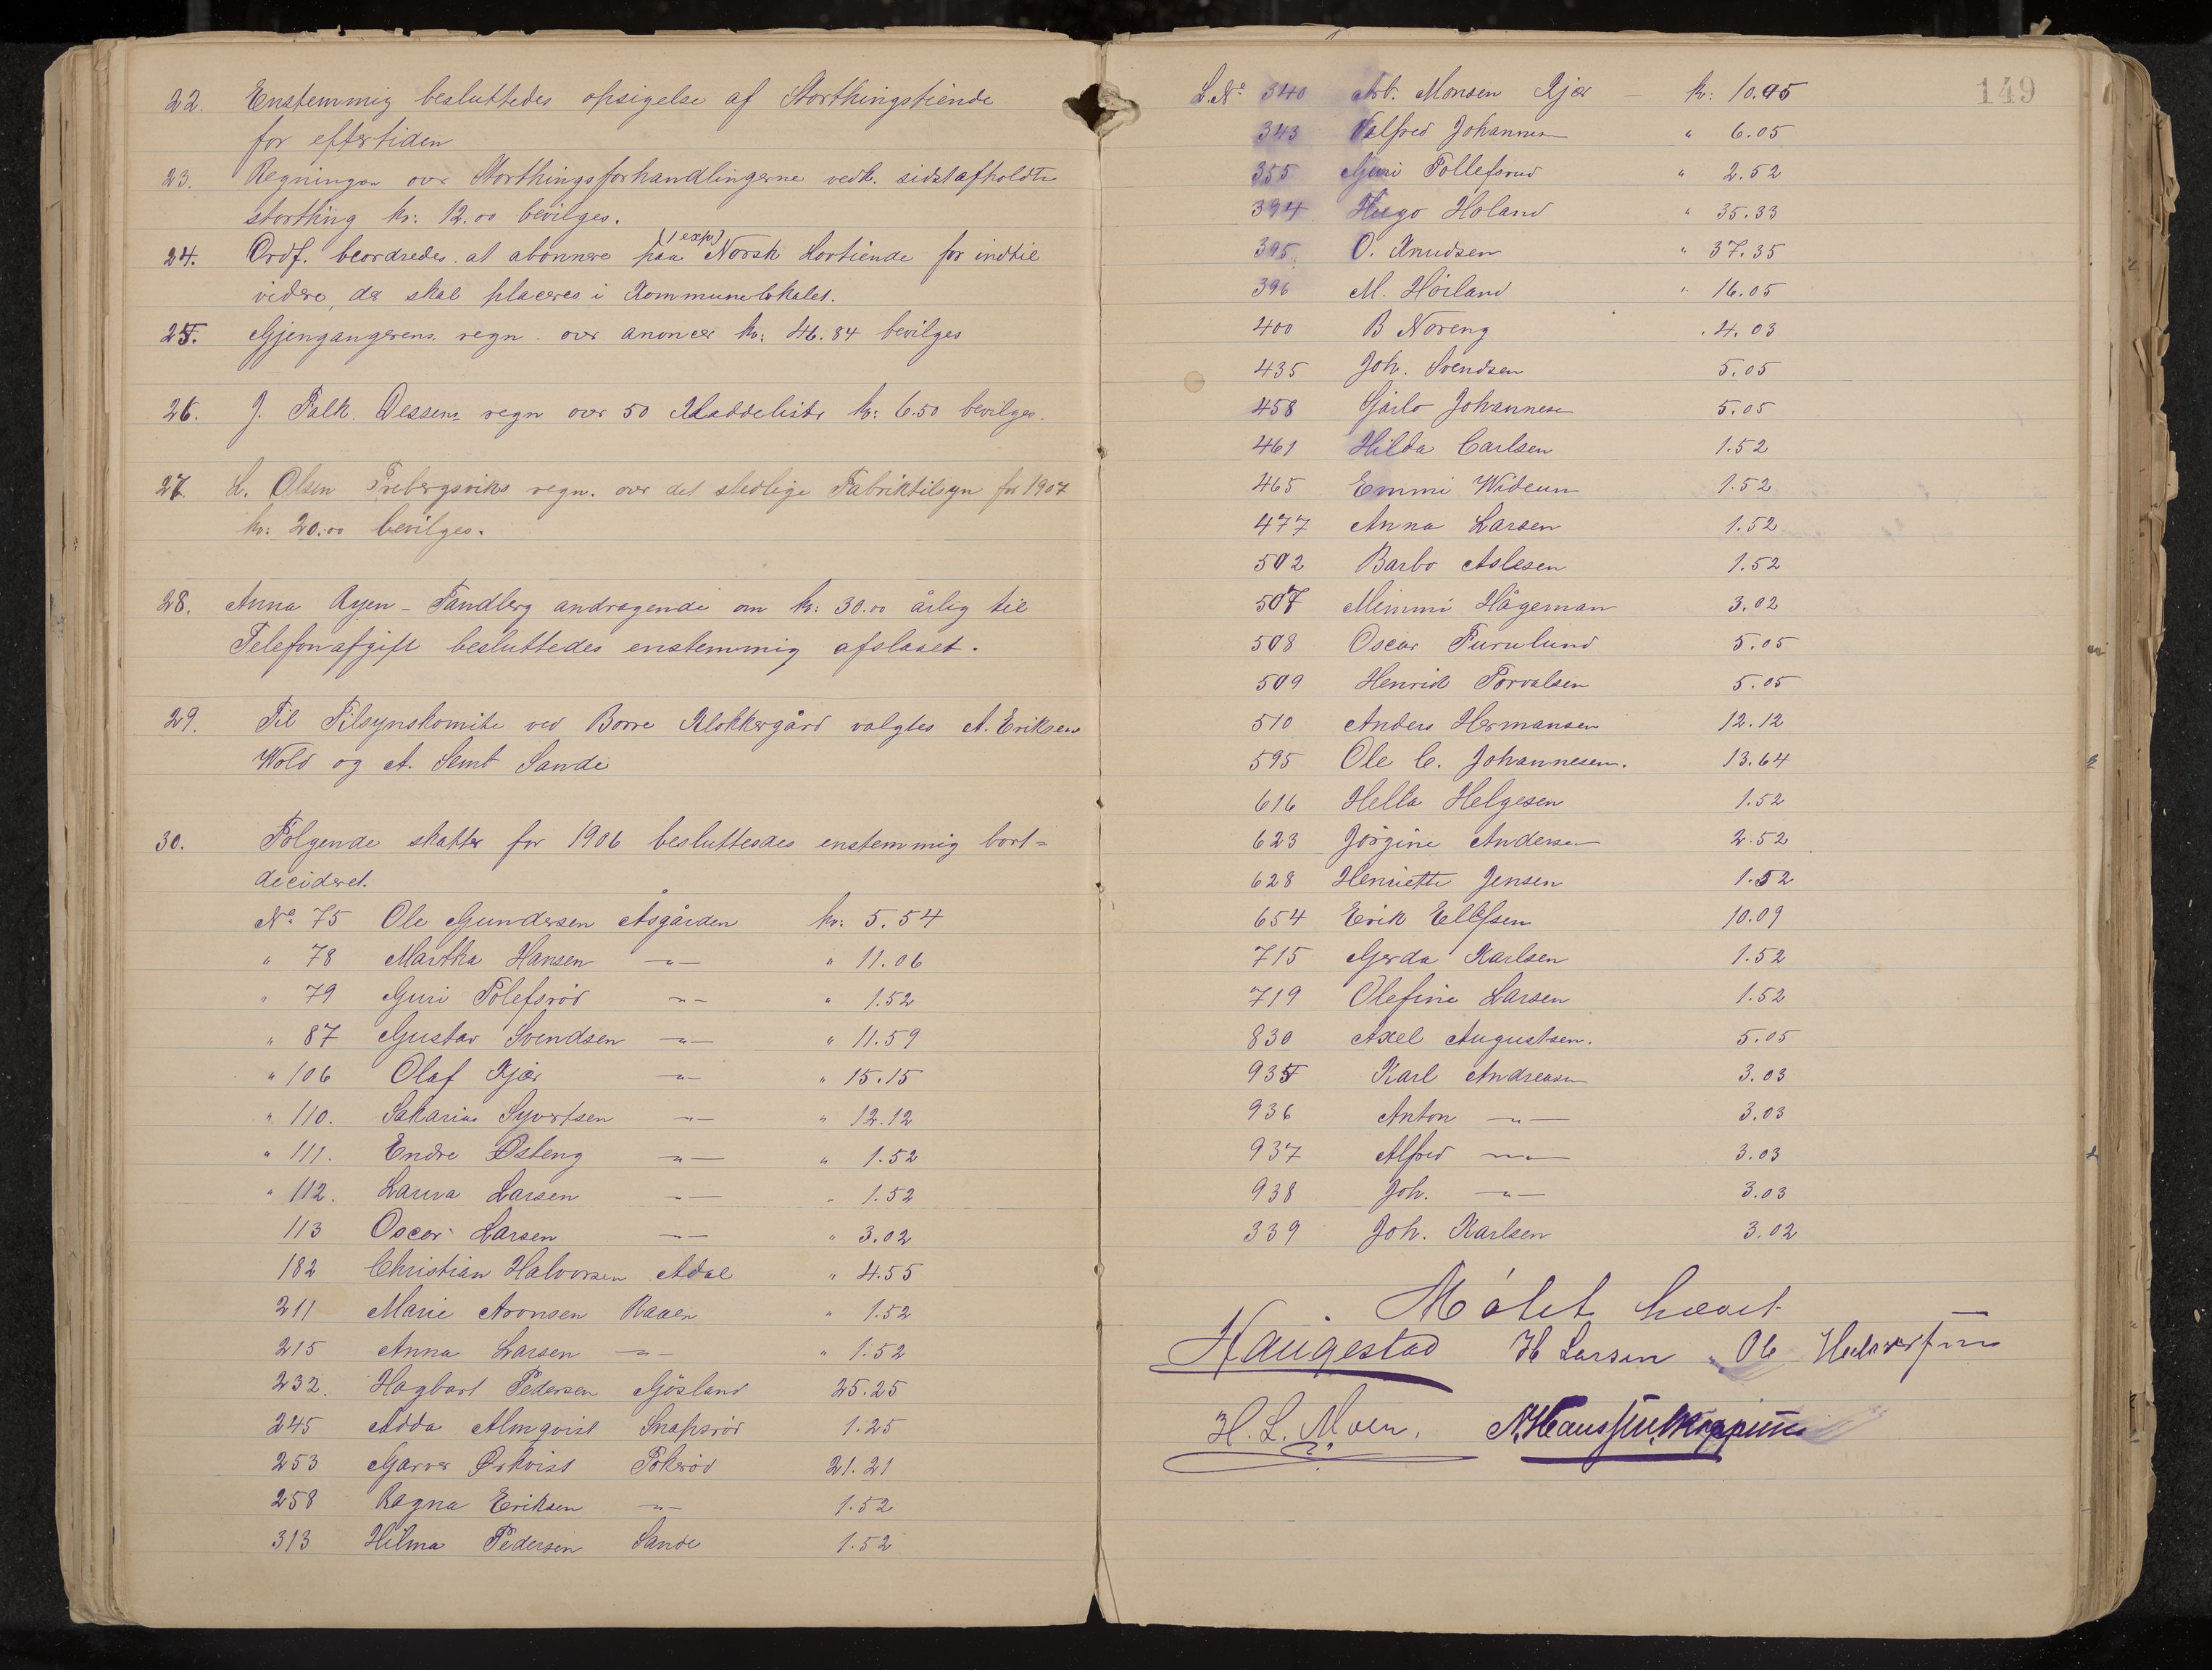 22. Enstemmig besluttedes opsigelse af Storthingstiende
for eftertiden
23. Regningen over Storthingsforhandlingerne vedk. sidstafholdte
storthing kr: 12.00 bevilges.
24. Ordf. beordredes at abonnere paa (1 expl) Norsk Lovtiende for indtil
videre, der skal placeres i Kommunelokalet.
25. Gjengangerens regn. over anoncer kr: 46.84 bevilges
26. J. Falk Dessens regn over 50 Kladdelister kr: 6.50 bevilges.
27. L. Olsen Frebergsviks regn. over det stedlige Fabriktilsyn for 1907
kr: 20.00 bevilges.
28. Anna Ryen - Tandberg andragende om kr: 30.00 årlig til
Telefonafgift besluttedes enstemmig afslaaet.
29. Til Tilsynskomite ved Borre Klokkergård valgtes A. Eriksen
Wold og A. Semb Sande
30. Følgende skatter for 1906 besluttesdes enstemmig bort=
decideret.
No 75 Ole Gundersen Åsgården kr: 5.54
" 78 Martha Hansen —"— " 11.06
" 79 Guri Tolefsrød —"— " 1.52
" 87 Gustav Svendsen —"— " 11.59
" 106 Olaf Kjær —"— " 15.15
" 110. Sakarias Syvertsen —"— " 12.12
" 111. Endre Østeng —"— " 1.52
" 112. Laura Larsen —"— " 1.52
113 Oscar Larsen —"— " 3.02
182 Christian Halvorsen Adal " 4.55
211 Marie Aronsen Raaen " 1.52
215 Anna Larsen —"— " 1.52
232. Hagbart Pedersen Gjøsland 25.25
245 Adda Almqvist Snapsrød 1.25
253 Garver Ørkvist Tokerød 21.21
258 Ragna Eriksen —"— 1.52
313 Hilma Pedersen Sande 1.52
149
L.No 340 Arb. Monsen Kjær — kr: 10.05
343 Valfred Johannesen " 6.05
355 Guri Tollefsrud " 2.52
394 Hugo Holand " 35.33
395. O. Knudsen " 37.35
396 M. Høiland " 16.05
400 B Noreng " 4.03
435 Joh. Svendsen 5.05
458 Johannesen 5.05
461 Hilda Carlsen 1.52
465 Emmi Wideun 1.52
477 Anna Larsen 1.52
502 Barbo Aslesen 1.52
507 Mimmi Hågeman 3.02
508 Oscar Furulund 5.05
509 Henrik Torvalsen 5.05
510 Anders Hermansen 12.12
595 Ole C. Johannesen. 13.64
616 Hella Helgesen 1.52
623 Jørgine Andersen 2.52
628 Henriette Jensen 1.52
654 Erik Ellefsen 10.09
715 Gerda Karlsen 1.52
719 Olefine Larsen 1.52
830 Axel Augustsen. 5.05
935 Karl Andreasen 3.03
936 Anton —"— 3.03
937 Alfred —"— 3.03
938 Joh. —"— 3.03
339 Joh. Karlsen 3.02
Mötet hævet
Haugestad H Larsen Ole
H. L. Moen. N. Haussen